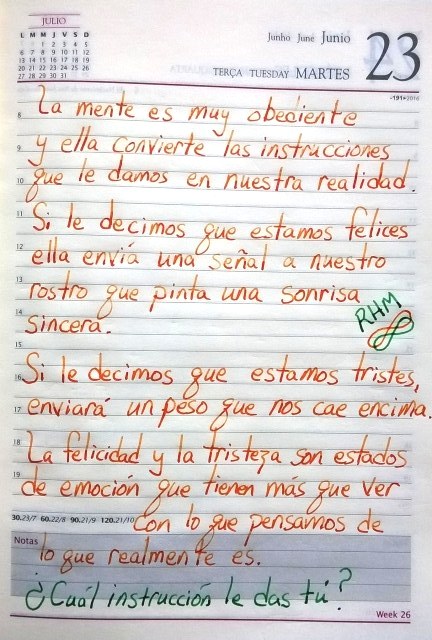 JULIO
L M M J V S D
1 2 3 4 5
6 7 8 9 10 11 12
13 14 15 16 17 18 19
20 21 22 23 24 25 26
27 28 29 30 31
Junho June Junio
TERÇA TUESDAY MARTES
23
-191•2014
8 La mente es muy obediente
9 y ella convierte las instrucciones
10 que le damos en nuestra realidad.
11 Si le decimos que estamos felices
12 ella envía una señal a nuestro
13 rostro que pinta una sonrisa
14 sincera.
RHM
15
16 Si le decimos que estamos tristes,
17 enviará un peso que nos cae encima.
18 La felicidad y la tristeza son estados
19 de emoción que tienen más que ver
30.23/7 60.22/8 90.21/9 120.21/10 con lo que pensamos de
Notas lo que realmente es.
¿Cuál instrucción le das tú?
Week 26